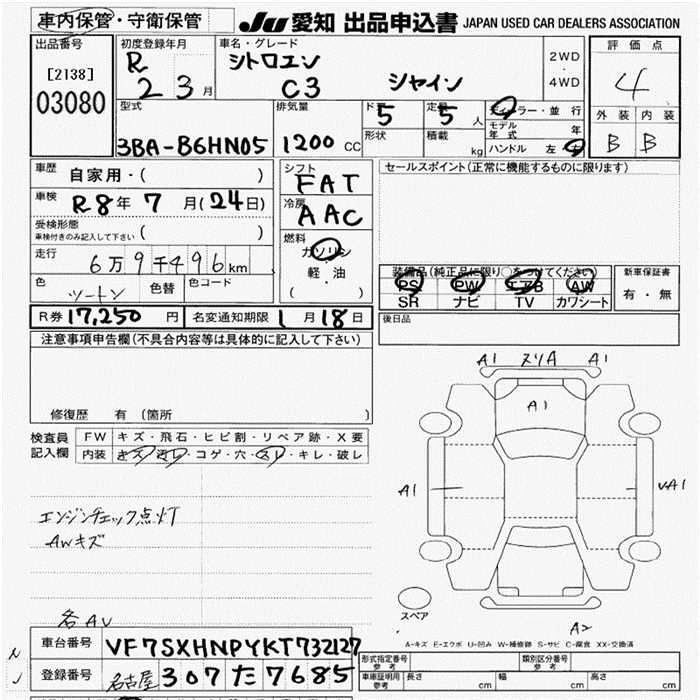 車内保管・守衛保管 JU 愛知 出品申込書 JAPAN USED CAR DEALERS ASSOCIATION
出品番号 [2138] 03080
初度登録年月 R 2 3 月
車名・グレード シトロエン C3 シャイン
2WD・4WD
評価点 4
外装 内装
B B
型式 3BA-B6HN05
排気量 1200 CC
ドア 5 定員 5 人
形状 積載 kg
ディーラー・並行
モデル年式 年
ハンドル 左・右
車歴 自家用・( )
車検 R8年 7 月(24日)
受検形態 ( )
車検付きのみ記入して下さい
走行 6万9千496km
色 ツートン 色替 色コード
シフト FAT
冷房 AAC
燃料 ガソリン・軽油
( )
セールスポイント(正常に機能するものに限ります)
装備品(純正品に限り○をつけてください)
PS PW エアB AW
SR ナビ TV カワシート
新車保証書
有・無
R券 17,250 円 名変通知期限 1 月 18 日
後日品
注意事項申告欄(不具合内容等は具体的に記入して下さい)
修復歴 有(箇所 )
検査員記入欄 FW キズ・飛石・ヒビ割・リペア跡・X要
内装 キズ・汚レ・コゲ・穴・スレ・キレ・破レ
エンジンチェック点灯
AWキズ
各AU
A1 ヌリA A1
A1
A1
UA1
スペア
A2
A-キズ E-エクボ U-凹み W-補修跡 S-サビ C-腐食 XX-交換済
車台番号 VF7SXHNPYKT732127
登録番号 名古屋 307 た 7685
形式指定番号 参考 類別区分番号 参考
車庫証明用 参考 長さ cm 幅 cm 高さ cm